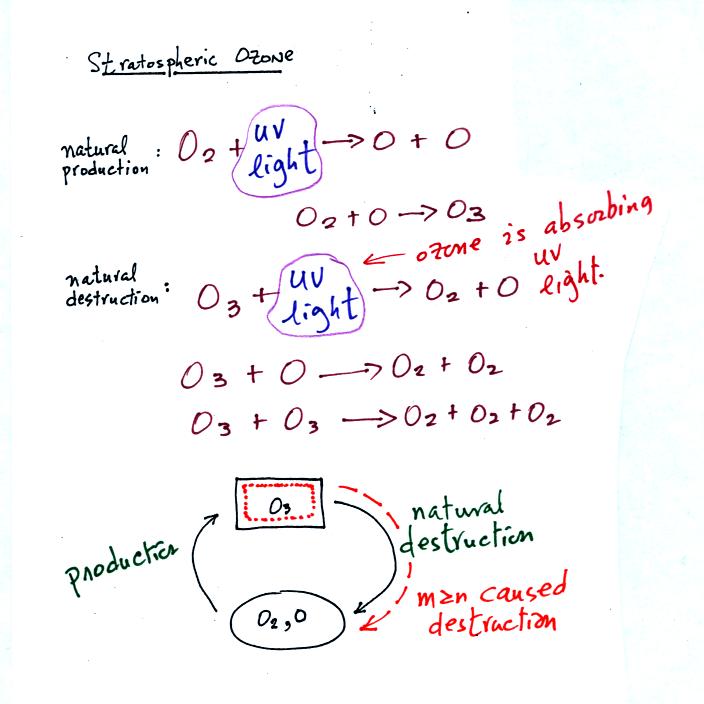 Stratospheric Ozone
natural production : O2 + uv light → O + O
O2 + O → O3
← ozone is absorbing uv light.
natural destruction : O3 + uv light → O2 + O
O3 + O → O2 + O2
O3 + O3 → O2 + O2 + O2
O3
production
natural
destruction
O2, O
man caused
destruction